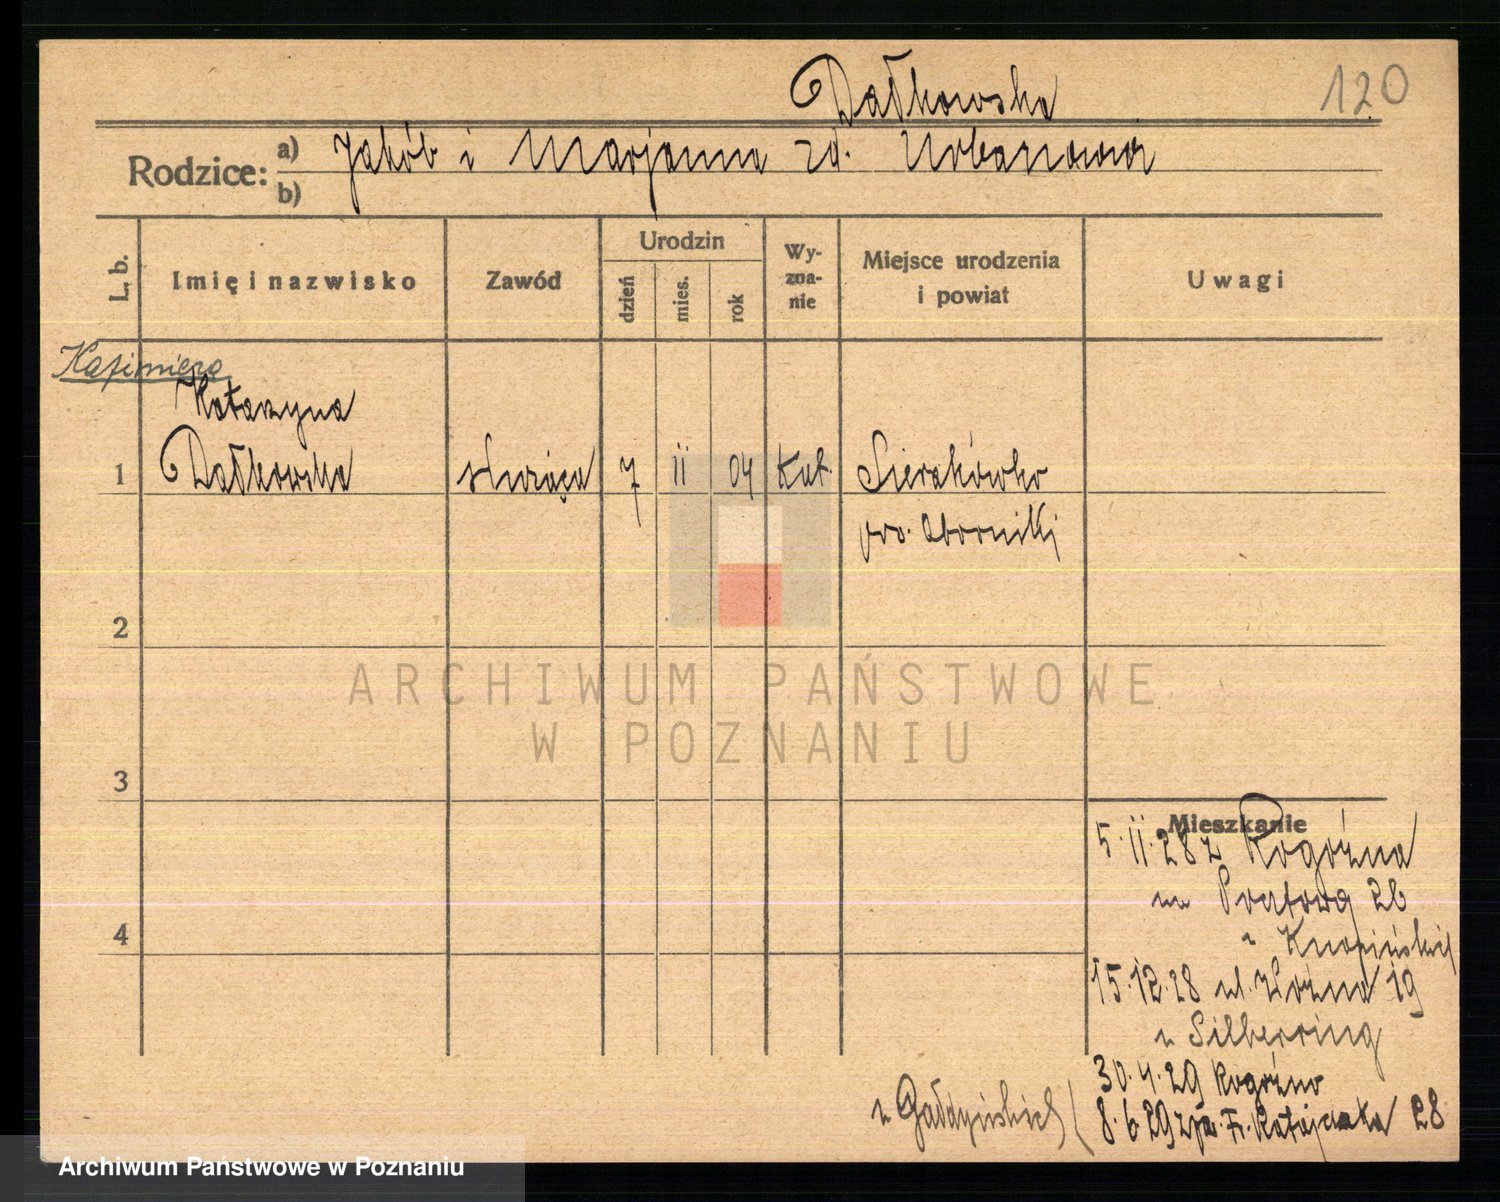 Dałkowska
120
Rodzice:
a) Jakób i Marjanna zd. Urbanowa
b)
L. b.
Imię i nazwisko
Zawód
Urodzin
dzień
mies.
rok
Wy-
zna-
nie
Miejsce urodzenia
i powiat
Uwagi
Kazimiera
Katarzyna
1 Dałkowska służąca 7 II 04 Kat. Sierakówko
pow. Oborniki
2
ARCHIWUM PAŃSTWOWE
W POZNANIU
3
Mieszkanie
5.II.28 z Rogoźna
4
u Knapińskich
15.12.28 ul. Woźna 19
u Silberring
30.4.29 Rogoźno
u Gałdyńskich
8.6.29 Fr. Ratajczaka 28
Archiwum Państwowe w Poznaniu